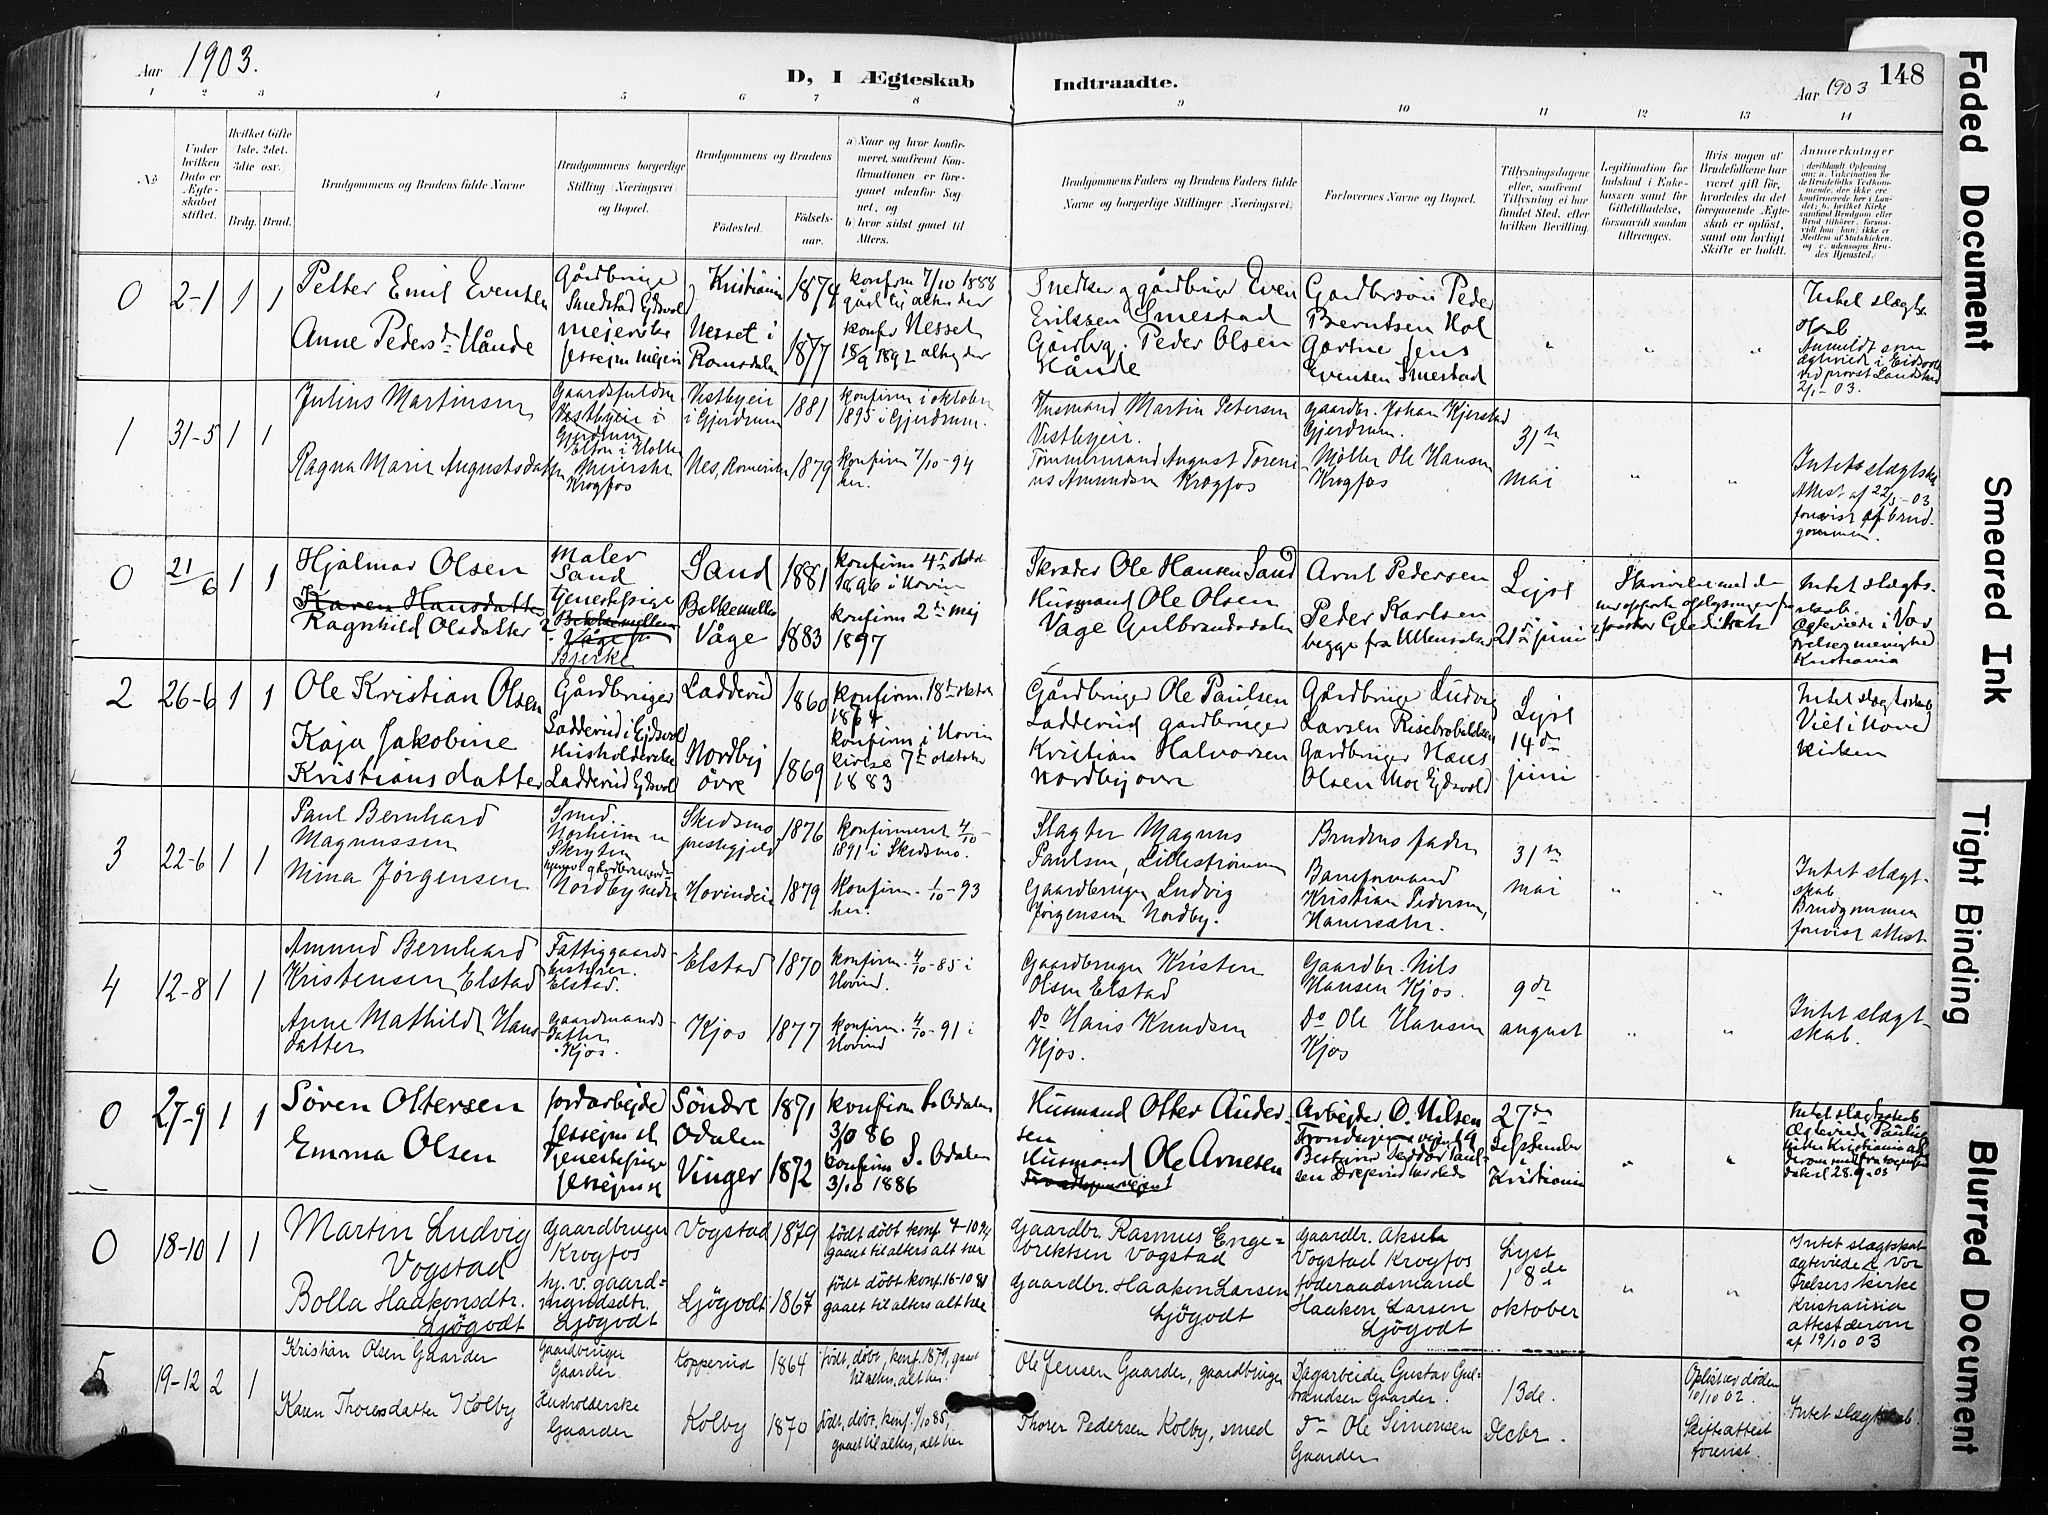 Aar 1903.
D, I Ægteskab
Indtraadte.
Aar 1903
148
1 2 3 4 5 6 7 8 9 10 11 12 13 14
No
Under hvilken Dato er Ægteskabet stiftet.
Hvilket Gifte 1ste, 2det, 3die osv.
Brdg. Brud.
Brudgommens og Brudens fulde Navne
Brudgommens borgerlige Stilling (Næringsvei) og Bopæl.
Brudgommens og Brudens
Fødested.
Fødselsaar.
a) Naar og hvor konfirmeret, saafremt Konfirmationen er foregaaet udenfor Sognet, og
b) hvor sidst gaaet til Alters.
Brudgommens Faders og Brudens Faders fulde Navne og borgerlige Stillinger (Næringsvei)
Forlovernes Navne og Bopæl.
Tillysningsdagene eller, saafremt Tillysning ei har fundet Sted, efter hvilken Bevilling.
Legitimation for Indskud i Enkekassen samt for Giftetilladelse, forsaavidt saadan tiltrænges.
Hvis nogen af Brudefolkene har været gift før, hvorledes da det foregaaende Ægteskab er opløst, samt om lovligt Skifte er holdt.
Anmærkninger
0 2-1 1 1
Petter Emil Evensen
Gårdbruger
Smedstad Ejdsvol
Kristiania 1874
konfirm 7/10 1888
gået til alters der
Snedker og gårdbruger Even
Eriksen Smestad
Gardbrsön Peder
Berntsen Hol
Anne Pedersdr Hånde
mejerske
Jessejm mejeri
Nesset i
Romsdalen
1877
konfir Nesset
18/9 1892 alters der
Gårdbrg. Peder Olsen
Hånde
Gartne Jens
Evensen Smestad
Intet slægtskab
Anmeldt som
ægteviede i Eidsvold
ved provst Landstad
2/1-03.
1 31-5 1 1
Julius Martinsen
Vestbyeie i
Gjerdrum
Vestbyeie
i Gjerdrum
1881
konfirm i oktober
1895 i Gjerdrum.
Husmand Martin Petersen
Vestbyeie.
gaardbr. Johan Kjerstad
Gjerdrum.
31te
mai
Ragna Marie Augustsdatter
Meierske
Krogfos
Nes, Romerike 1879
konfirm 7/10-94
her.
Tømmermand August Toreni-
us Amundsen Krogfos
Møller Ole Hansen
Krogfos
Intet slægtskab
Attest af 22/5-03
forevist af brud-
gommen.
0 21/6 1 1
Hjalmar Olsen
Maler
Sand
Sand 1881
konfirm 4de oktober
1896 i Hovin
Skræder Ole Hansen Sand
Arnt Pedersen
Lyst
21de juni
Karen Hansdatter
Ragnhild Olsdatter
tjenestepige
Våge
Bjerke
Bekkemellem
Våge
1883
konfirm 2den maj
1897
Husmand Ole Olsen
Våge Gulbrandsdalen
Peder Karlsen
begge fra Ullensaker
Intet slægts-
skab.
Ægteviede i Vor
Frelsers menighed
Kristiania
2 26-6 1 1
Ole Kristian Olsen
Gårdbruger
Ladderud i Ejdsvol
Ladderud 1860
konfirm 18de oktober
1874
Gårdbruger Ole Paulsen
Ladderud
Gårdbruger Ludvig
Larsen Risebrobakken
Lyst
14de
juni
Kaja Jakobine
Kristiansdatter
Husholderske
Ladderud Ejdsvol
Nordby
övre
1869
konfirm i Hovin
kirke 7de oktober
1883
gardbruger
Kristian Halvorsen
Nordby övre
Gardbruger Hans
Olsen Moe Ejdsvold
Intet slægtsskab
Viet i Hoved
kirken
3 22-6 1 1
Paul Bernhard
Magnussen
Smed.
Skedsmo
prestegjeld
1876
konfirmeret 4/10-
1891 i Skedsmo.
Slagter Magnus
Paulsen, Lillestrømmen
Brudens fader
31te
mai
Nina Jørgensen
Nordby nedre
Hovindeie 1879
Konfirm. 1/10-93
her.
Gaardbruger Ludvig
Jørgensen Nordby.
Baneformand
Kristian Pedersen,
Hauersæter.
Intet slægt-
skab
Brudgommen
forevist attest
4 12-8 1 1
Amund Bernhard
Kristensen Elstad
Fattiggaards-
bestyrer.
Elstad.
Elstad 1870
konfirm. 4/10-85 i
Hovind.
Gaardbruger Kristen
Olsen Elstad
Gaardbr. Nils
Hansen Kjos.
9de
august
Anne Mathilde Hans-
datter
gaardmands-
datter
Kjos.
Kjos 1877
konfirm. 4/10-91 i
Hovind
Do Hans Knudsen
Kjos.
Do Ole Hansen
Kjos
Intet slægt-
skab.
0 27-9 1 1
Sören Ottersen
Jordarbejde
Jessejm st
Söndre
Odalen
1871
konfirm S. Odalen
3/10 86
Husmand Otter Ander-
sen
Arbejder O. Nilsen
27de
September
i
Kristiania
Emma Olsen
Tjenestepige
Jessejm st
Vinger 1872
konfirm S. Odalen
3/10 1886
Husmand Ole Arnesen
Intet slægtskab
Ægteviede Paulus
kirke Kristiania
0 18-10 1 1
Martin Ludvig
Vogstad
Gaardbruger
Krogfos
Vogstad 1879
født døbt konf. 7-10 94
gaaet til alters alt her
Gaardbr. Rasmus Enge-
bretsen Vogstad
gaardbr. Aksel
Vogstad Krogfos
Lyst
18de
oktober
Bolla Haakonsdtr.
Ljøgodt
hj. v. gaard-
mandsdtr.
Ljøgodt
Ljøgodt 1867
født døbt konf. 16-10 81
gaaet til alters alt her
Gaardbr. Haakon Larsen
Ljøgodt
føderaadsmand
Haaken Larsen
Ljøgodt
Intet slægtskab
ægteviede i Vor
Frelsers kirke
Kristiania
attest derom
af 19/10 03
5 19-12 2 1
Kristian Olsen Gaarder
Gaardbruger
Gaarder
Kopperud 1864
født, døbt, konf. 1879, gaaet
til alters, alt her.
Ole Jensen Gaarder, gaardbruger
Dagarbeider Gustav Gul-
brandsen Gaarder.
13de.
Decbr.
Opløst ved døden
10/10 02
Skifteattest
forevist.
Intet slægtskab.
Karen Thoresdatter Kolby
Husholderske
Gaarder
Kolby 1870
født, døbt, konf. 4/10 85,
gaaet til alters, alt her
Thorer Pedersen Kolby, smed
do Ole Simensen
Gaarder
Faded Document
Smeared Ink
Tight Binding
Blurred Document